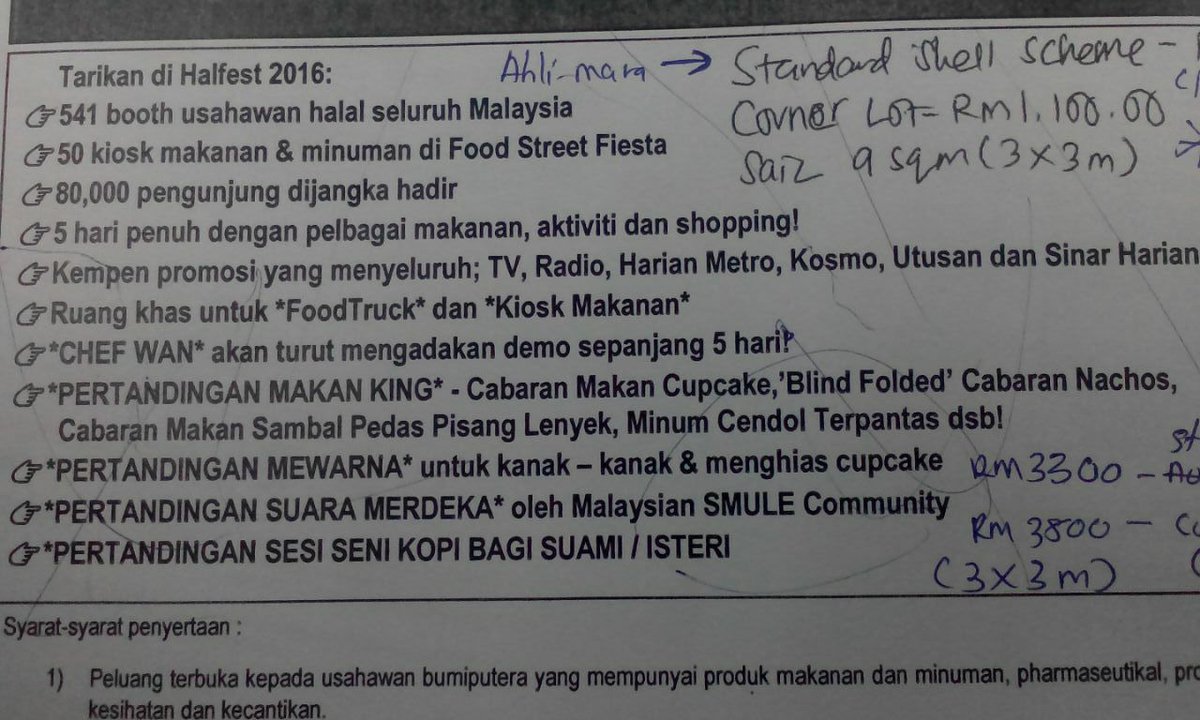 Tarikan di Halfest 2016:
Ahli-mara → Standard Shell Scheme -
Corner Lot = Rm 1,100.00
Saiz 9 sqm (3 x 3 m)
541 booth usahawan halal seluruh Malaysia
50 kiosk makanan & minuman di Food Street Fiesta
80,000 pengunjung dijangka hadir
5 hari penuh dengan pelbagai makanan, aktiviti dan shopping!
Kempen promosi yang menyeluruh; TV, Radio, Harian Metro, Kosmo, Utusan dan Sinar Harian
Ruang khas untuk *FoodTruck* dan *Kiosk Makanan*
*CHEF WAN* akan turut mengadakan demo sepanjang 5 hari!
*PERTANDINGAN MAKAN KING* - Cabaran Makan Cupcake,'Blind Folded' Cabaran Nachos,
Cabaran Makan Sambal Pedas Pisang Lenyek, Minum Cendol Terpantas dsb!
*PERTANDINGAN MEWARNA* untuk kanak – kanak & menghias cupcake
RM 3300 -
*PERTANDINGAN SUARA MERDEKA* oleh Malaysian SMULE Community
RM 3800 -
*PERTANDINGAN SESI SENI KOPI BAGI SUAMI / ISTERI
(3 x 3 m)
Syarat-syarat penyertaan :
1) Peluang terbuka kepada usahawan bumiputera yang mempunyai produk makanan dan minuman, pharmaseutikal,
kesihatan dan kecantikan.